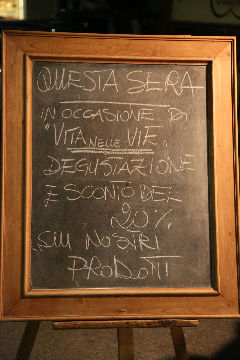 QUESTA SERA
IN OCCASIONE DI
"VITA NELLE VIE"
DEGUSTAZIONE
E SCONTO DEL
20%
SUI NOSTRI
PRODOTTI